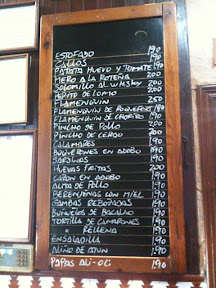 ESTOFADO 190
CALLOS 190
PATATA HUEVO Y TOMATE 190
MERO A LA ROTEÑA 200
SOLOMILLO AL WHISKY 200
PEPITO DE LOMO 200
FLAMENQUIN 250
FLAMENQUIN DE ROQUEFORT 190
FLAMENQUIN DE CHORIZO 190
PINCHO DE POLLO 200
PINCHO DE CERDO 200
CALAMARES 190
BOQUERONES EN ADOBO 190
SARDINAS 190
HUEVAS FRITAS 200
CAZON EN ADOBO 190
ALITA DE POLLO 190
BERENJENAS CON MIEL 190
GAMBAS REBOZADAS 190
BUÑUELOS DE BACALAO 190
TORTILLA DE CAMARONES 190
" RELLENA 190
ENSALADILLA 190
ALIÑO DE ATUN 190
PAPAS ALI-OLI 190